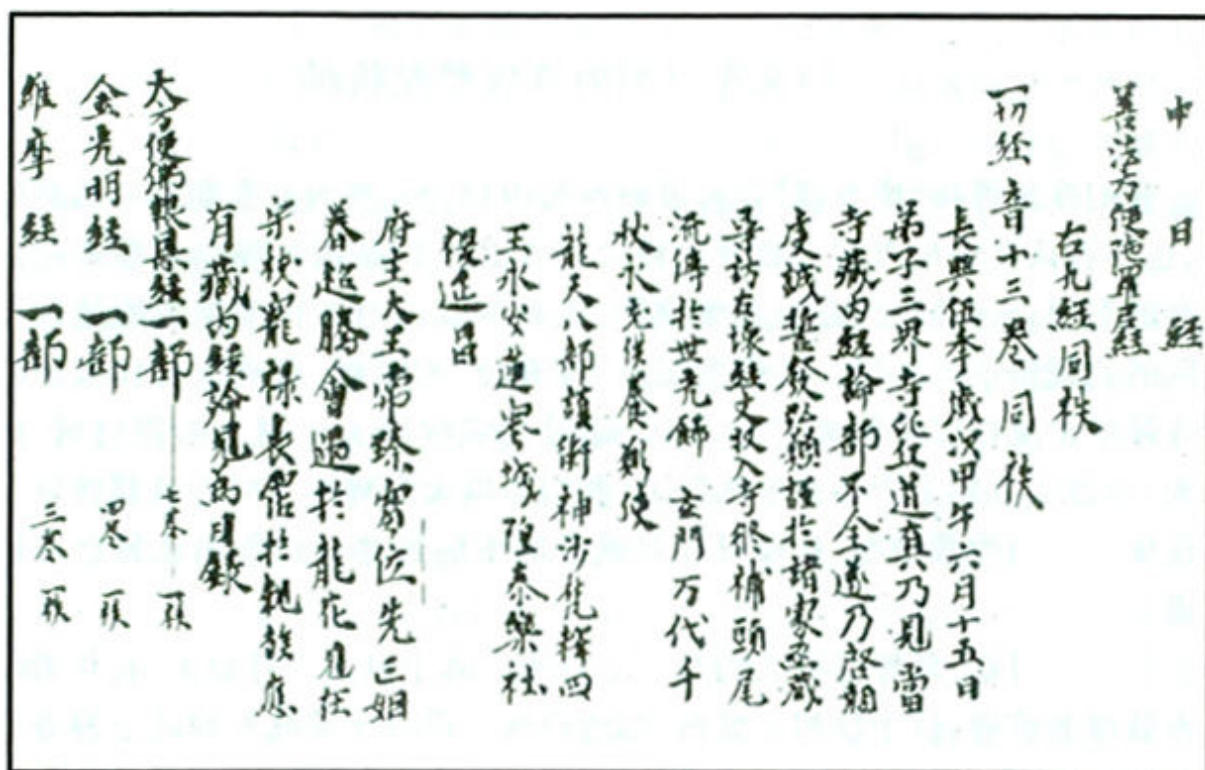 中日經
善法方便陁羅尼經
右九經同袟
一切經音十三卷同袟
長興伍年歲次甲午六月十五日
弟子三界寺比丘道真乃見當
寺藏內經論部不全遂乃啓顙
虔誠誓發弘願謹於諸家函藏
尋訪古壞經文收入寺修補頭尾
流傳於世光飾玄門万代千
秋永充供養願使
龍天八部護衛神沙梵釋四
王永安蓮塞城隍泰樂社
稷延昌
府主大王常臻寳位先亡姻
眷超騰會遇於龍花見任
宗枝寵祿長僭於親族應
有藏內經論見爲目錄
大方便佛報恩經一部 七卷 一袟
金光明經一部 四卷 一袟
維摩經一部 三卷 一袟